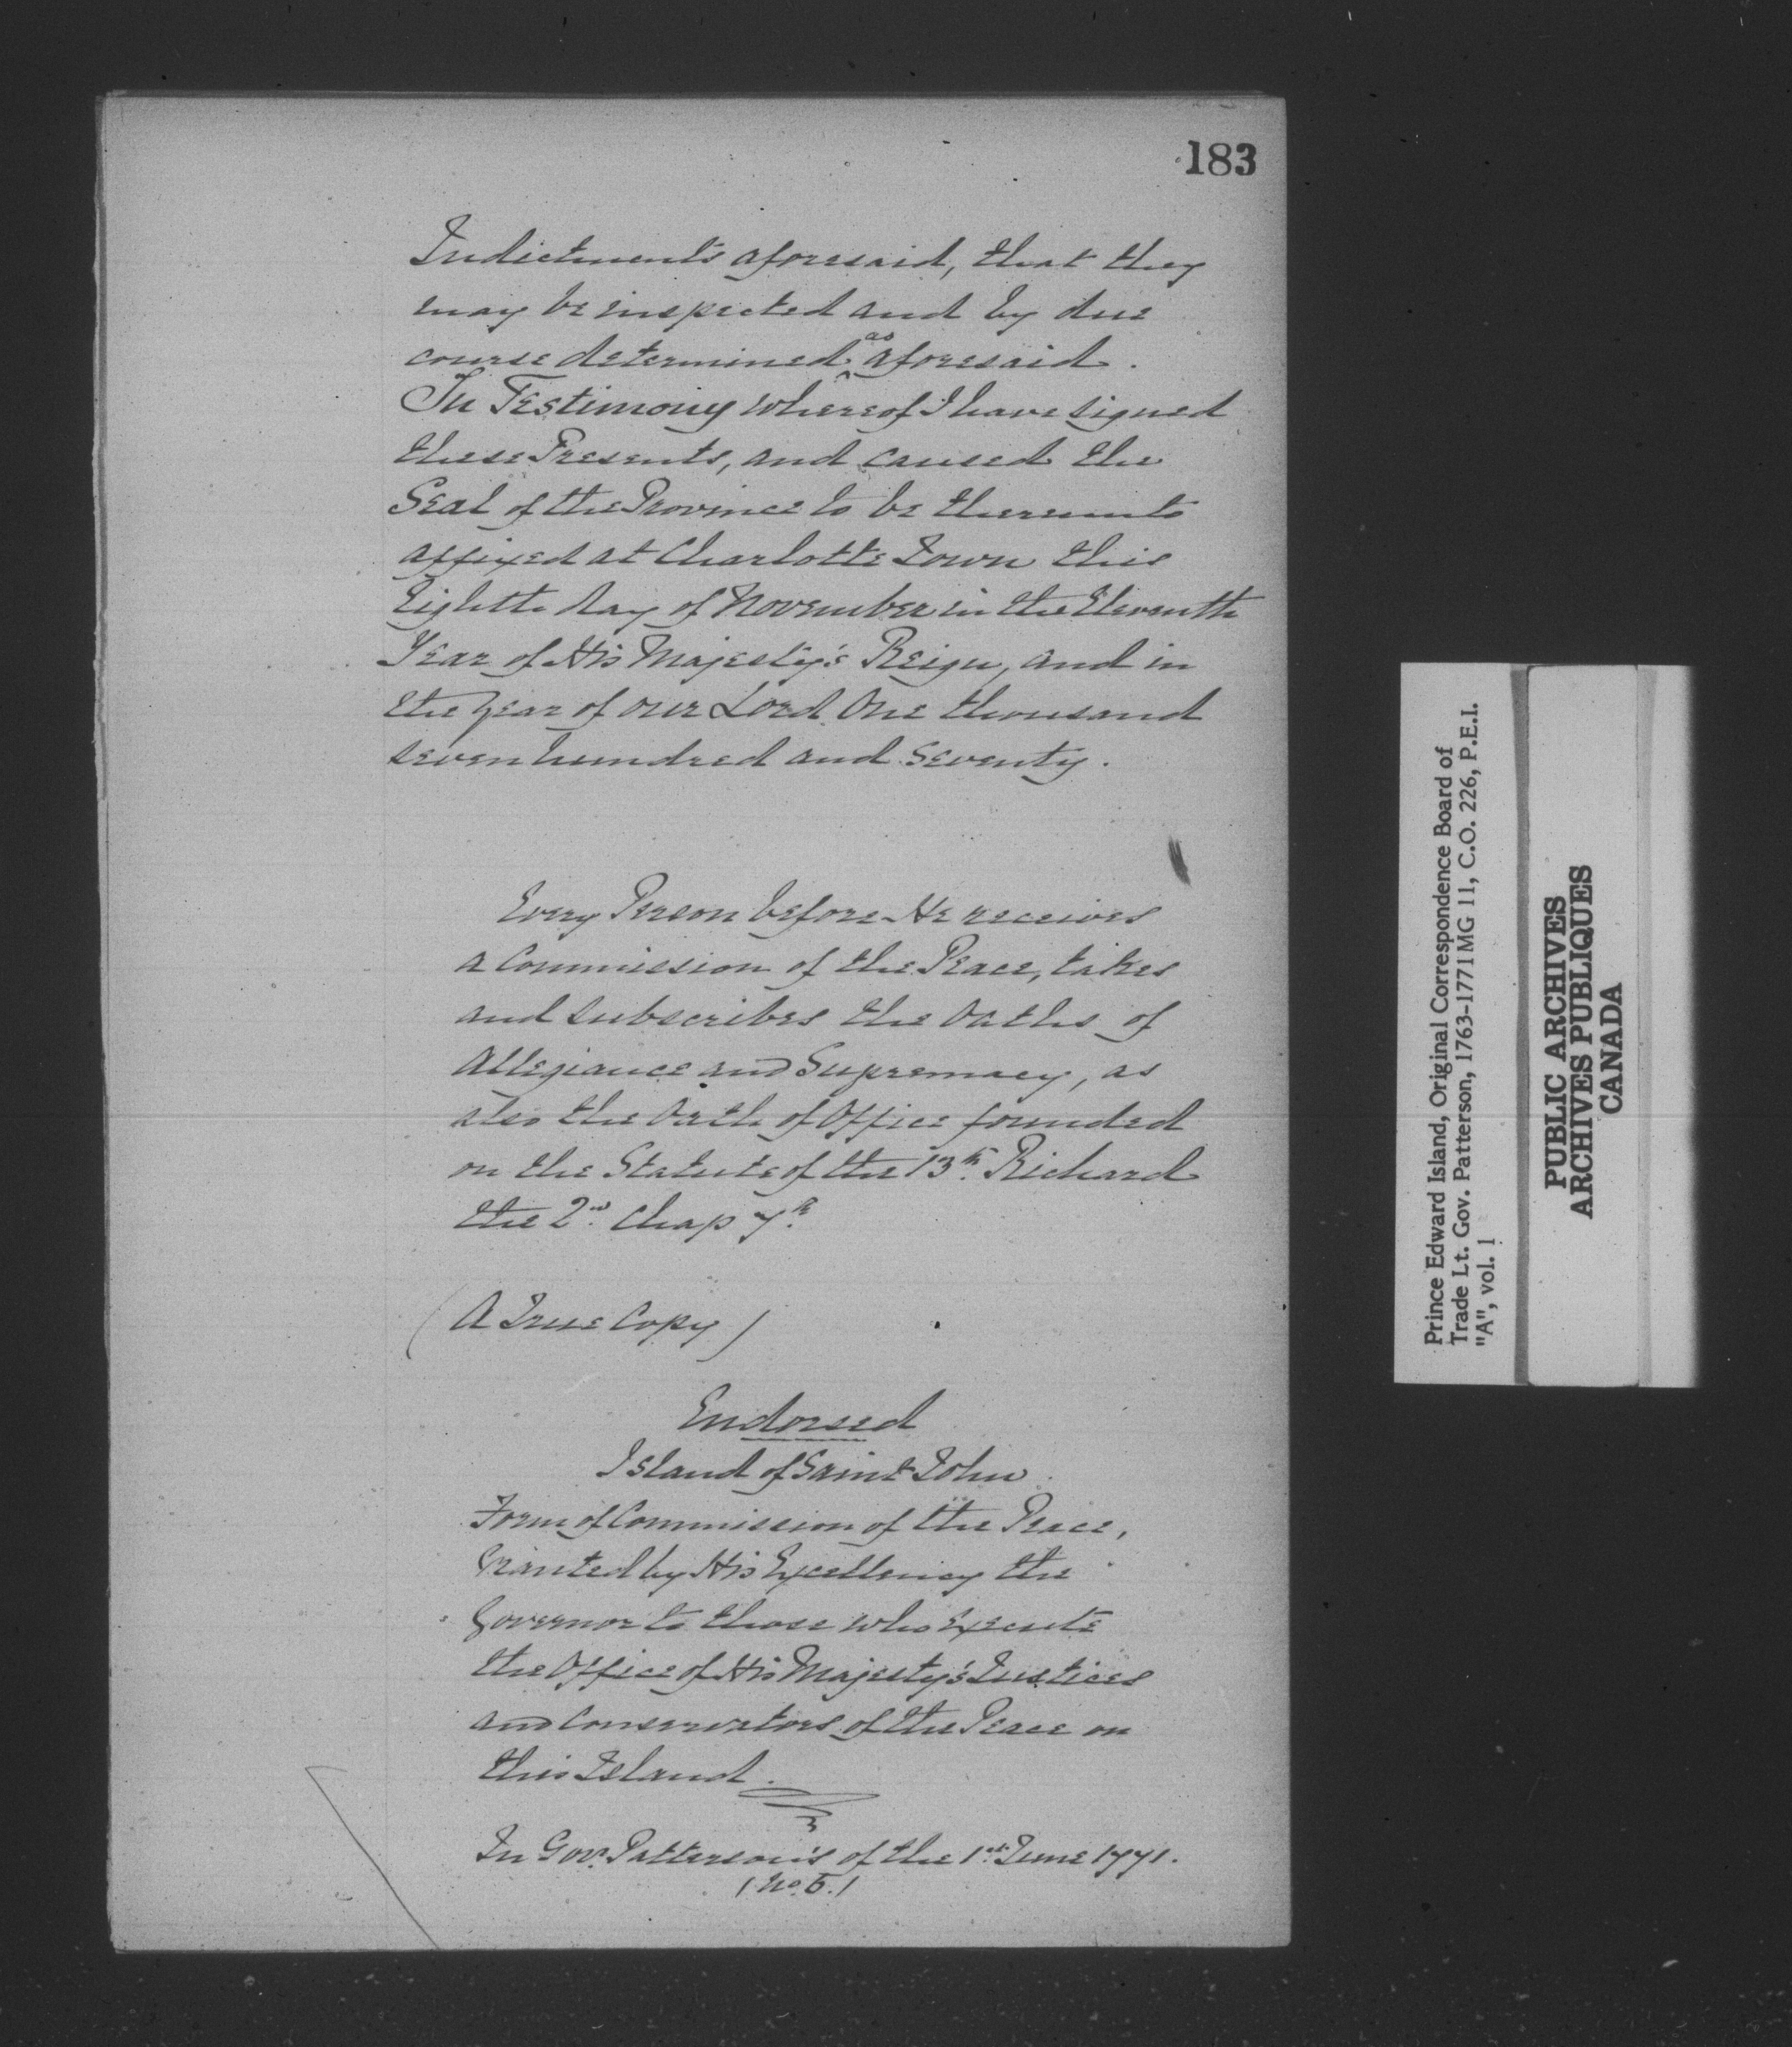 183
Indictments aforesaid, that they
may be inspected and by due
course determined as aforesaid.
In Testimony whereof I have signed
these Presents, and caused the
Seal of the Province to be thereunto
affixed at Charlotte Town this
Eighth day of November in the Eleventh
Year of His Majesty's Reign, and in
the year of our Lord One thousand
seven hundred and seventy.
Every Person before He receives
a Commission of the Peace, takes
and subscribes the Oaths of
Allegiance and Supremacy, as
also the Oath of Office founded
on the Statute of the 13th. Richard
the 2nd. Chap 7th.
(A True Copy)
Endorsed
Island of Saint John
Form of Commission of the Peace,
Granted by His Excellency the
Governor to those who Execute
the Office of His Majesty's Justices
and Conservators of the Peace on
this Island.
In Govr. Patterson's of the 1st. June 1771.
(No. 5.)
Prince Edward Island, Original Correspondence Board of
Trade Lt. Gov. Patterson, 1763-1771 MG 11, C.O. 226, P.E.I.
"A", vol. 1
PUBLIC ARCHIVES
ARCHIVES PUBLIQUES
CANADA